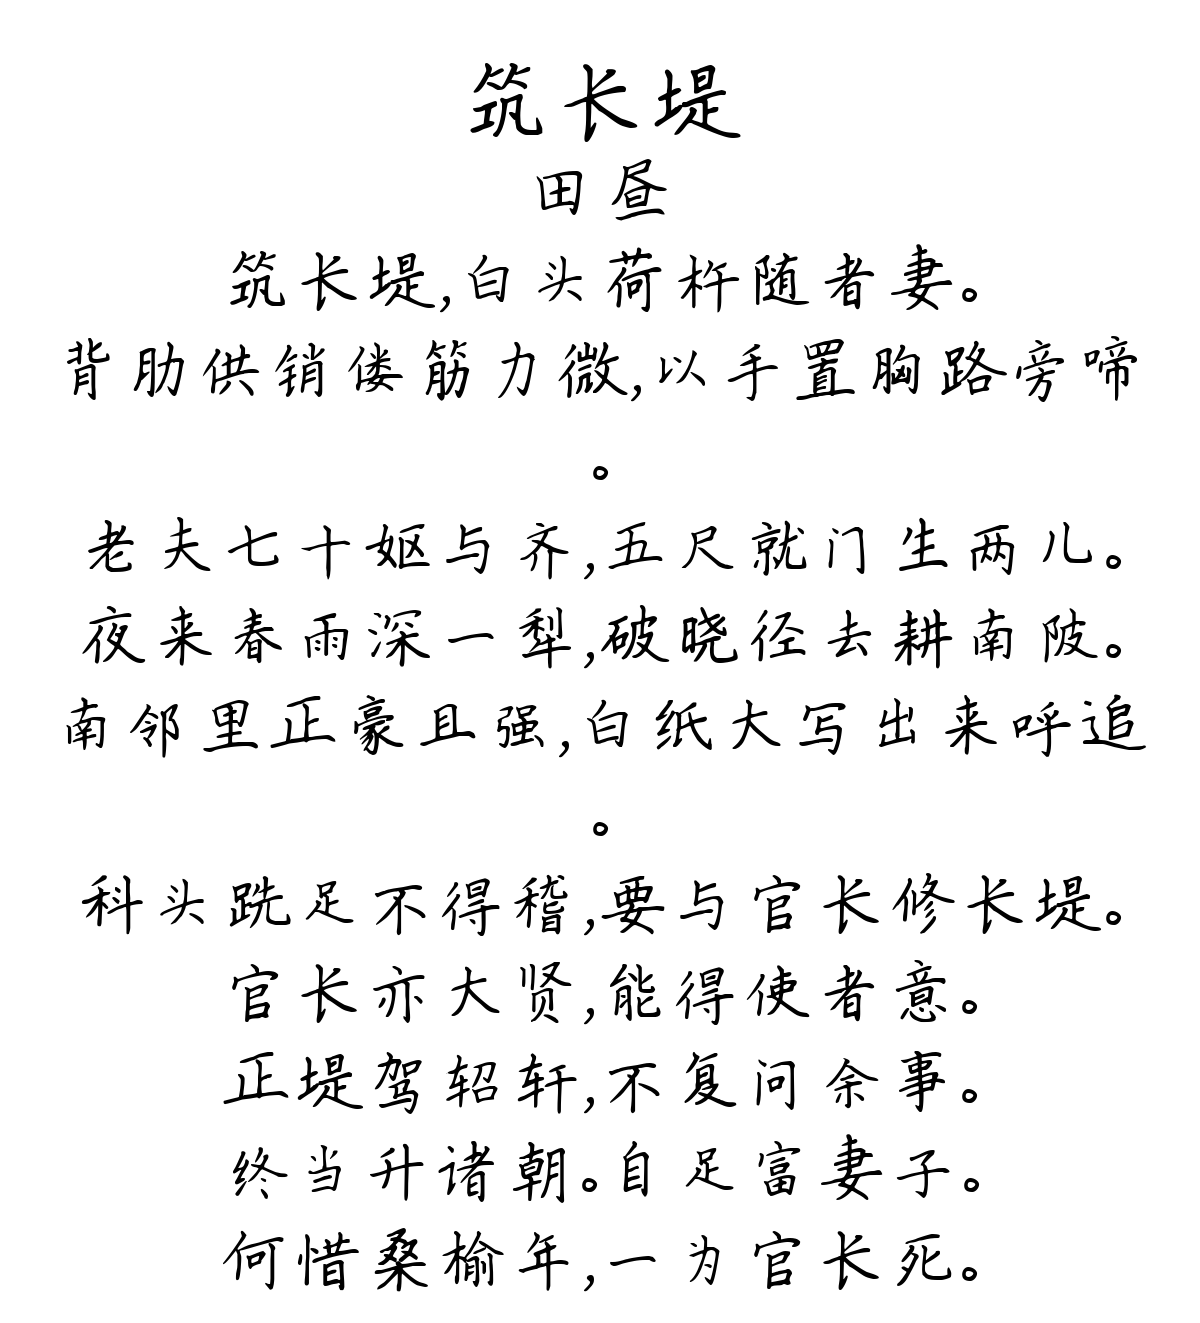 筑长堤
田昼
筑长堤,白头荷杵随者妻。
背肋供销偻筋力微,以手置胸路旁啼
。
老夫七十妪与齐,五尺就门生两儿。
夜来春雨深一犁,破晓径去耕南陂。
南邻里正豪且强,白纸大写出来呼追
。
科头跣足不得稽,要与官长修长堤。
官长亦大贤,能得使者意。
正堤驾轺轩,不复问余事。
终当升诸朝。自足富妻子。
何惜桑榆年,一为官长死。